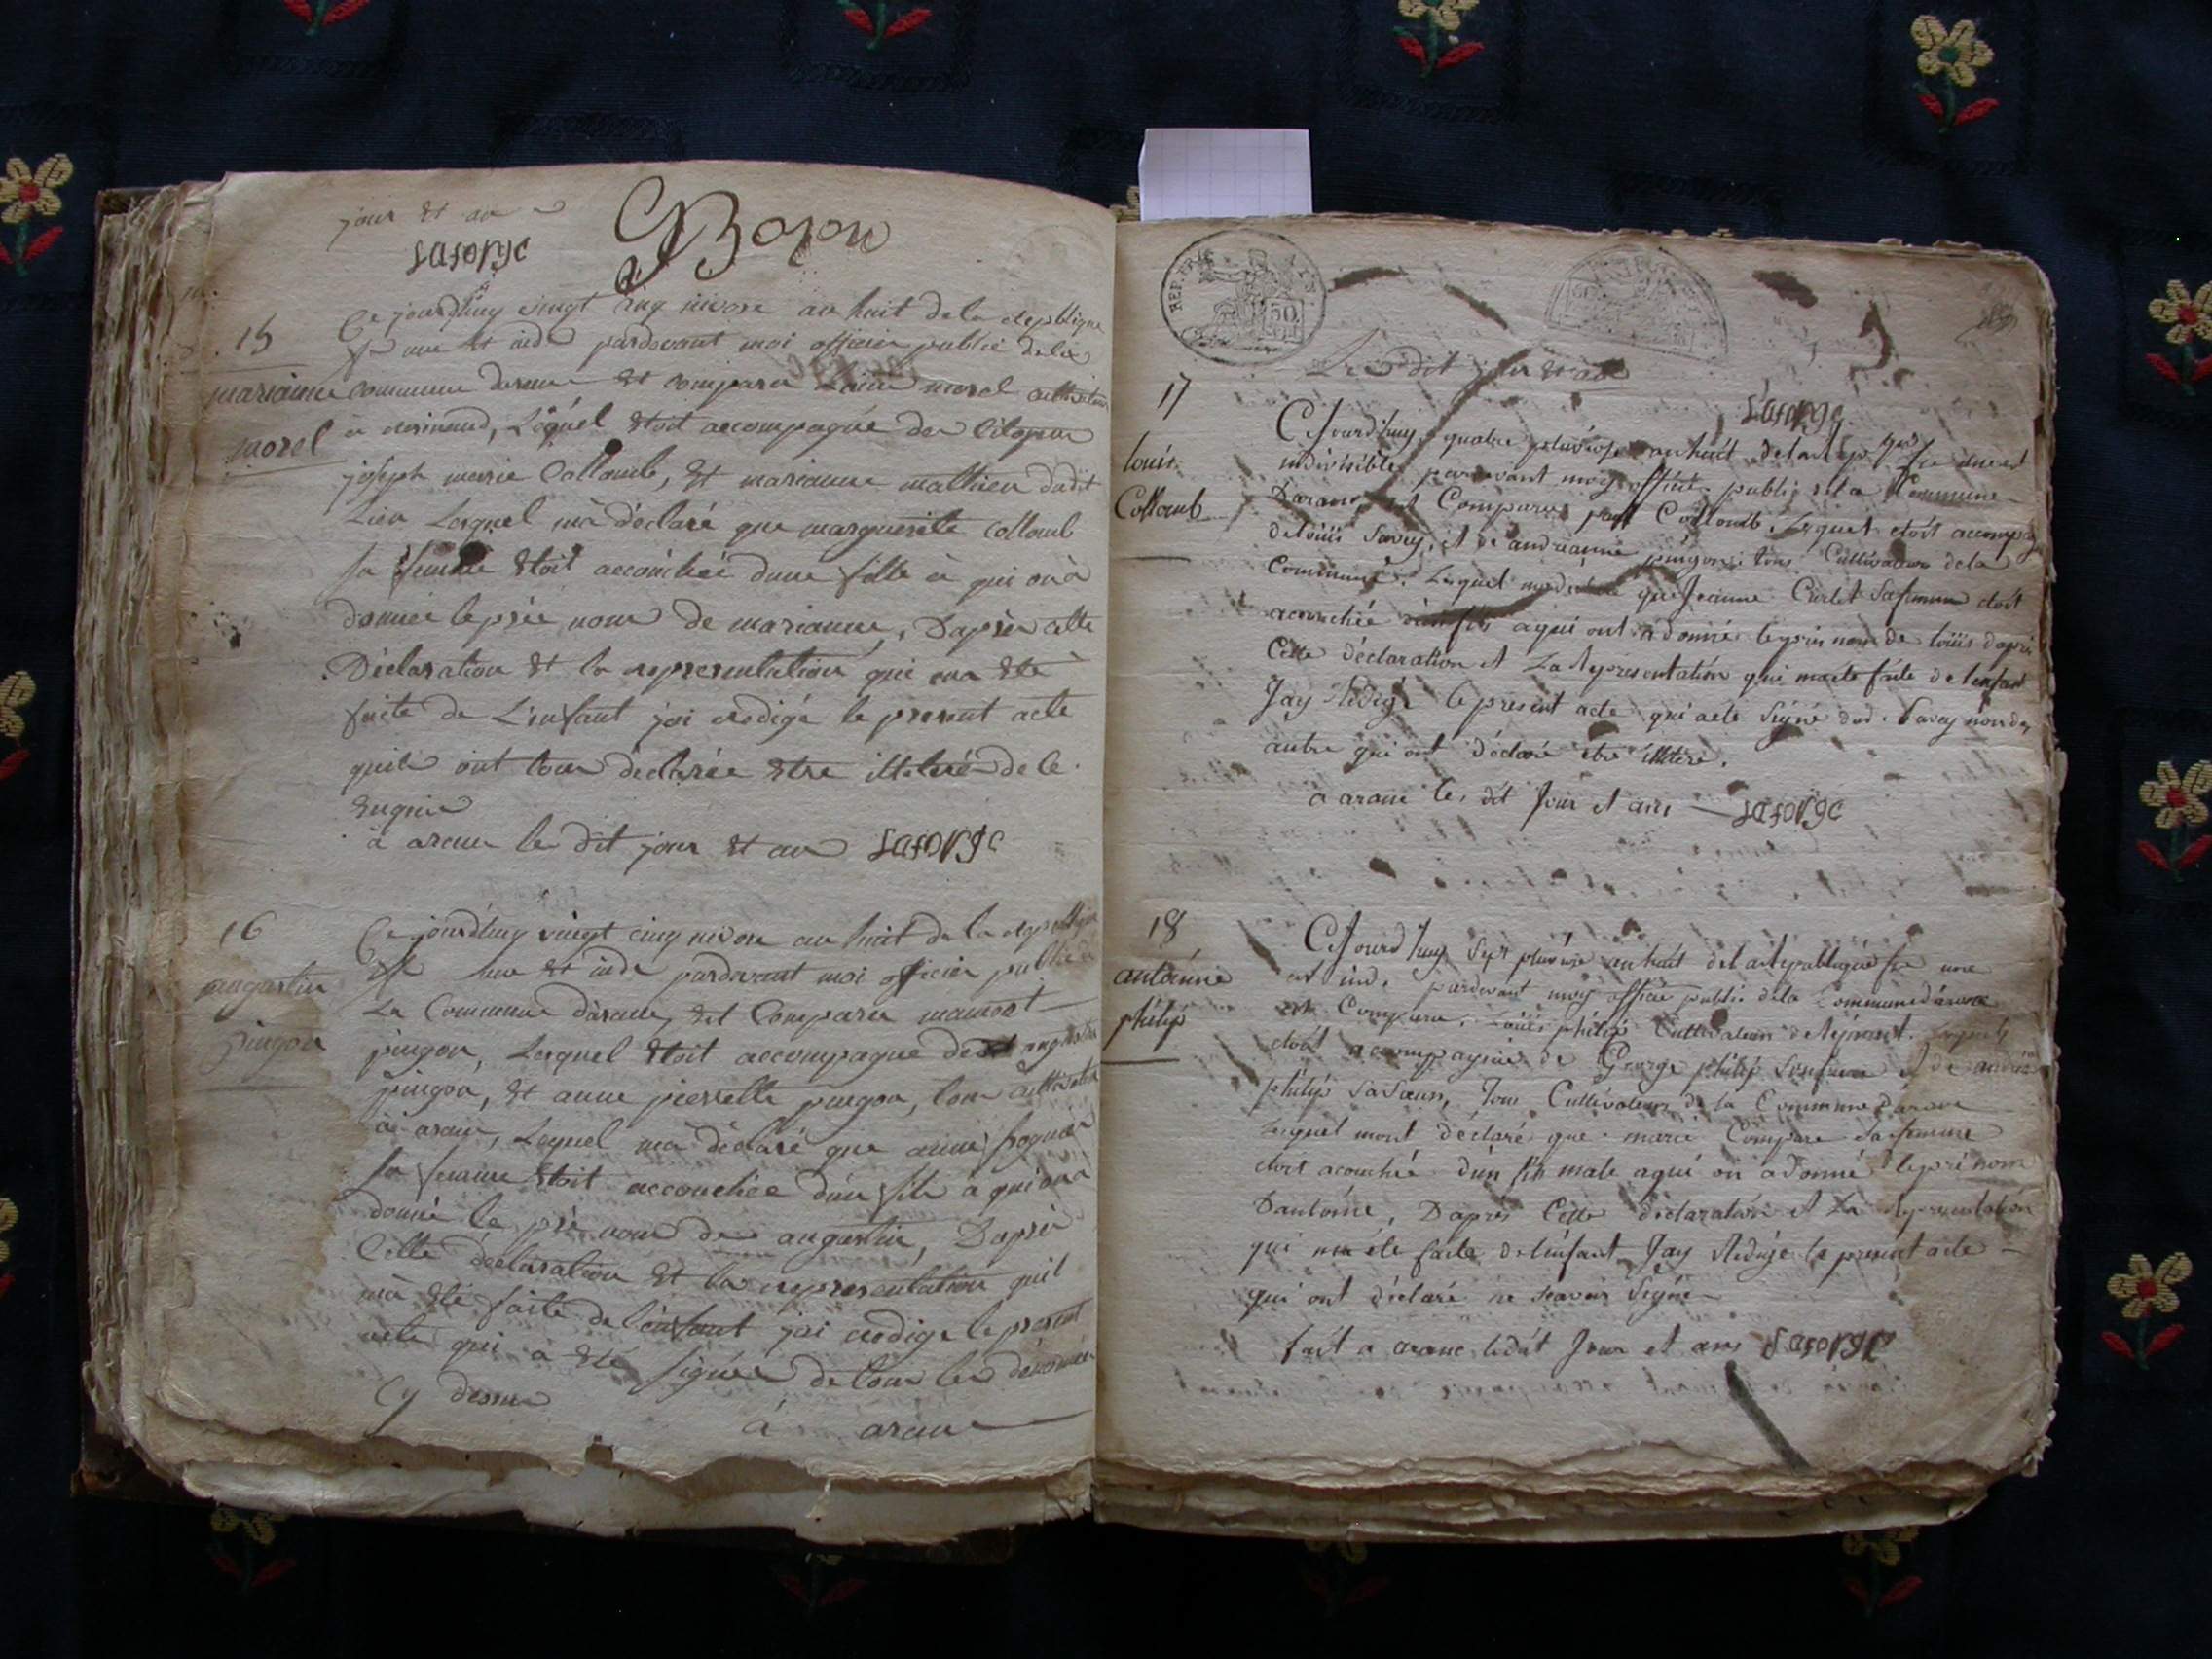 jour et an
Laforge
Ce jourdhuy vingt cinq nivose an huit de la republique
15
fr une et indi pardevant moi officier public de la
marianne
commune daranc est comparu morel cultivateur
morel
à resinand, Lequel etoit accompagné des Citoyens
joseph marie Collomb, et marianne mathieu dudit
Lieu Lesquel m'a déclaré que marguerite Collomb
sa femme etoit accouchée dune fille à qui on à
donnée le pré nom de marianne, D'après cette
Déclaration et la representation qui ma eté
faite de L'enfant jai redigé le present acte
quils ont tous declarée etre illeteré de le
à aranc le dit jour et an Laforge
16
Ce jourdhuy vingt cinq nivose an huit de la republique
augustin
fr une et indi pardevant moi officier public de
pingon
La Commune d'aranc, est Comparu
pingon, Lesquel etoit accompagné de augustin
pingon, et anne pierrette pingon, tous cultivateur
à aranc, Lequel m'a déclaré que
sa femme etoit accouchée d'un fils à qui on à
donné le pré nom de augustin, D'après
Cette déclaration et la representation quil
m'à eté faite de l'enfant jai redigé le present
acte qui a eté signée de tous les dénomés
Cy dessus
à aranc
REP. FRA. 50 CENT.
Le dit jour et an
Laforge
17
Cejourd'huy quatre pluviose an huit de la Rep que fr une et
louis
indivisible pardevant moy officier public de la Commune
Collomb
Daranc est Comparu Collomb Lequel etoit accompag
de loüis Savey, et de andréanne pingon tous Cultivateur de la
Commune. Lequel ma declaré que Jeanne Curlet Safemme etoit
acouchée d'un fils a qui ont a donné le prés nom de loüis dapré
Cette déclaration et La Représentation qui ma eté faite de lenfant
Jay Redigé le present acte qui a eté Signé dud. Savey non des
autre qui ont déclaré etre illitéré.
a aranc le, dit Jour et ans Laforge
18
Cejourd'huy Sept pluviose an huit de la Republique fr une
antoinne
et ind. pardevant moy officié public de la Commune d'aranc
philip
est Comparu. Loüis philip Cultivateur de Résinant. Lequel
etoit acompagnié de George philip Son frere et de
philip Sa Sœur, Tous Cultivateurs de la Commune daranc
Lequel mont déclaré que marie Compare Safemme
etoit acouchée d'un fils male a qui on a donné le pré nom
Dantoine, D'après Cette declaration et La Representation
qui ma eté faite de lenfant Jay Redigé le present acte
qui ont déclaré ne scavoir Signé
fait a aranc ledit Jour et ans Laforge